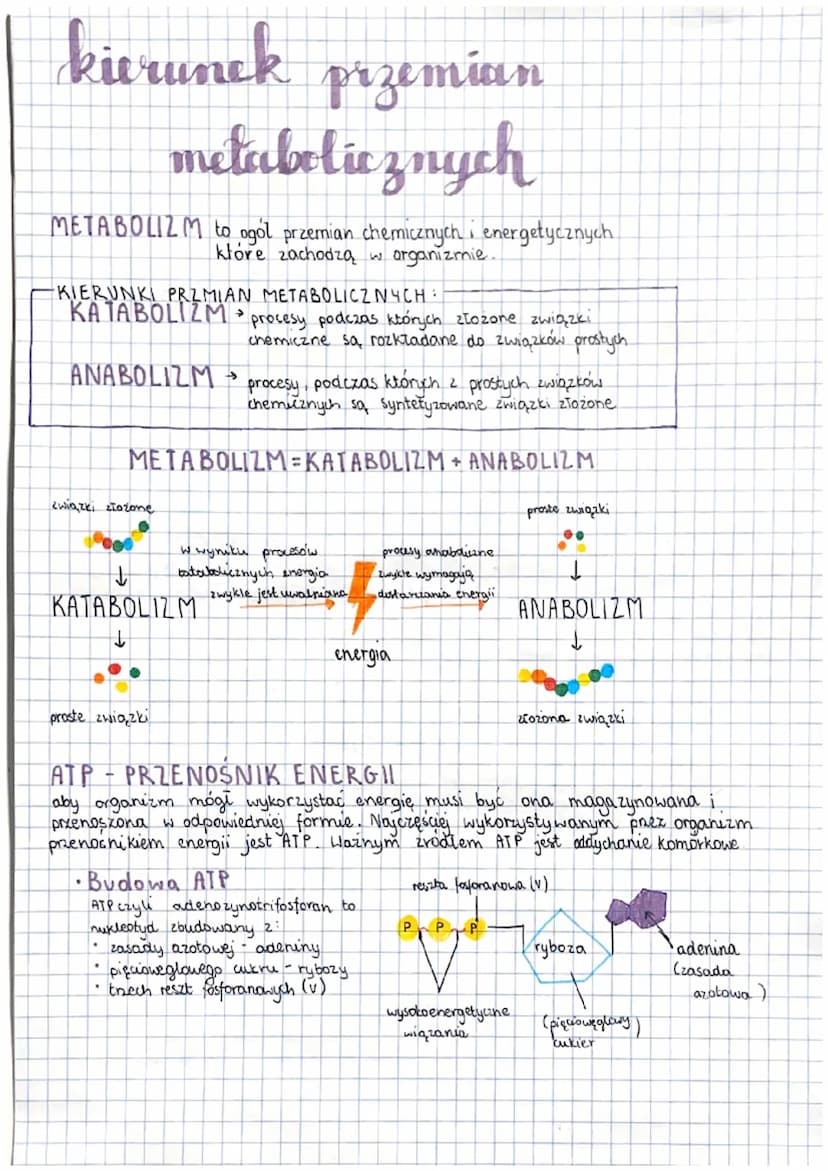 kierunek przemian
metabolicznych
METABOLIZM to ogół przemian chemicznych i energetycznych
które zachodzą w organizmie.
KIERUNKI PRZMIAN METABOLICZNYCH:
KATABOLIZM → procesy podczas których złożone związki
chemiczne są rozkładane do związków prostych
ANABOLIZM → procesy, podczas których z prostych związków
chemicznych są syntetyzowane związki złożone
METABOLIZM = KATABOLIZM + ANABOLIZM
związki złożone
proste związki
w wyniku procesów
katabolicznych energia
zwykle jest uwalniana
procesy anaboliczne
zwykle wymagają
dostarczania energii
KATABOLIZM
ANABOLIZM
energia
proste związki
złożona związki
ATP - PRZENOŚNIK ENERGII
aby organizm mógł wykorzystać energię musi być ona magazynowana i
przenoszona w odpowiedniej formie. Najczęściej wykorzystywanym przez organizm
przenośnikiem energii jest ATP. Ważnym źródłem ATP jest oddychanie komórkowe
• Budowa ATP
ATP czyli adenozynotrifosforan to
nukleotyd zbudowany z:
• zasady azotowej - adeniny
• pięciowęglowego cukru - rybozy
• trzech reszt fosforanowych (V)
reszta fosforanowa (V)
P P P
ryboza
adenina
(zasada
azotowa)
wysokoenergetyczne
wiązania
(pięciowęglowy
cukier)